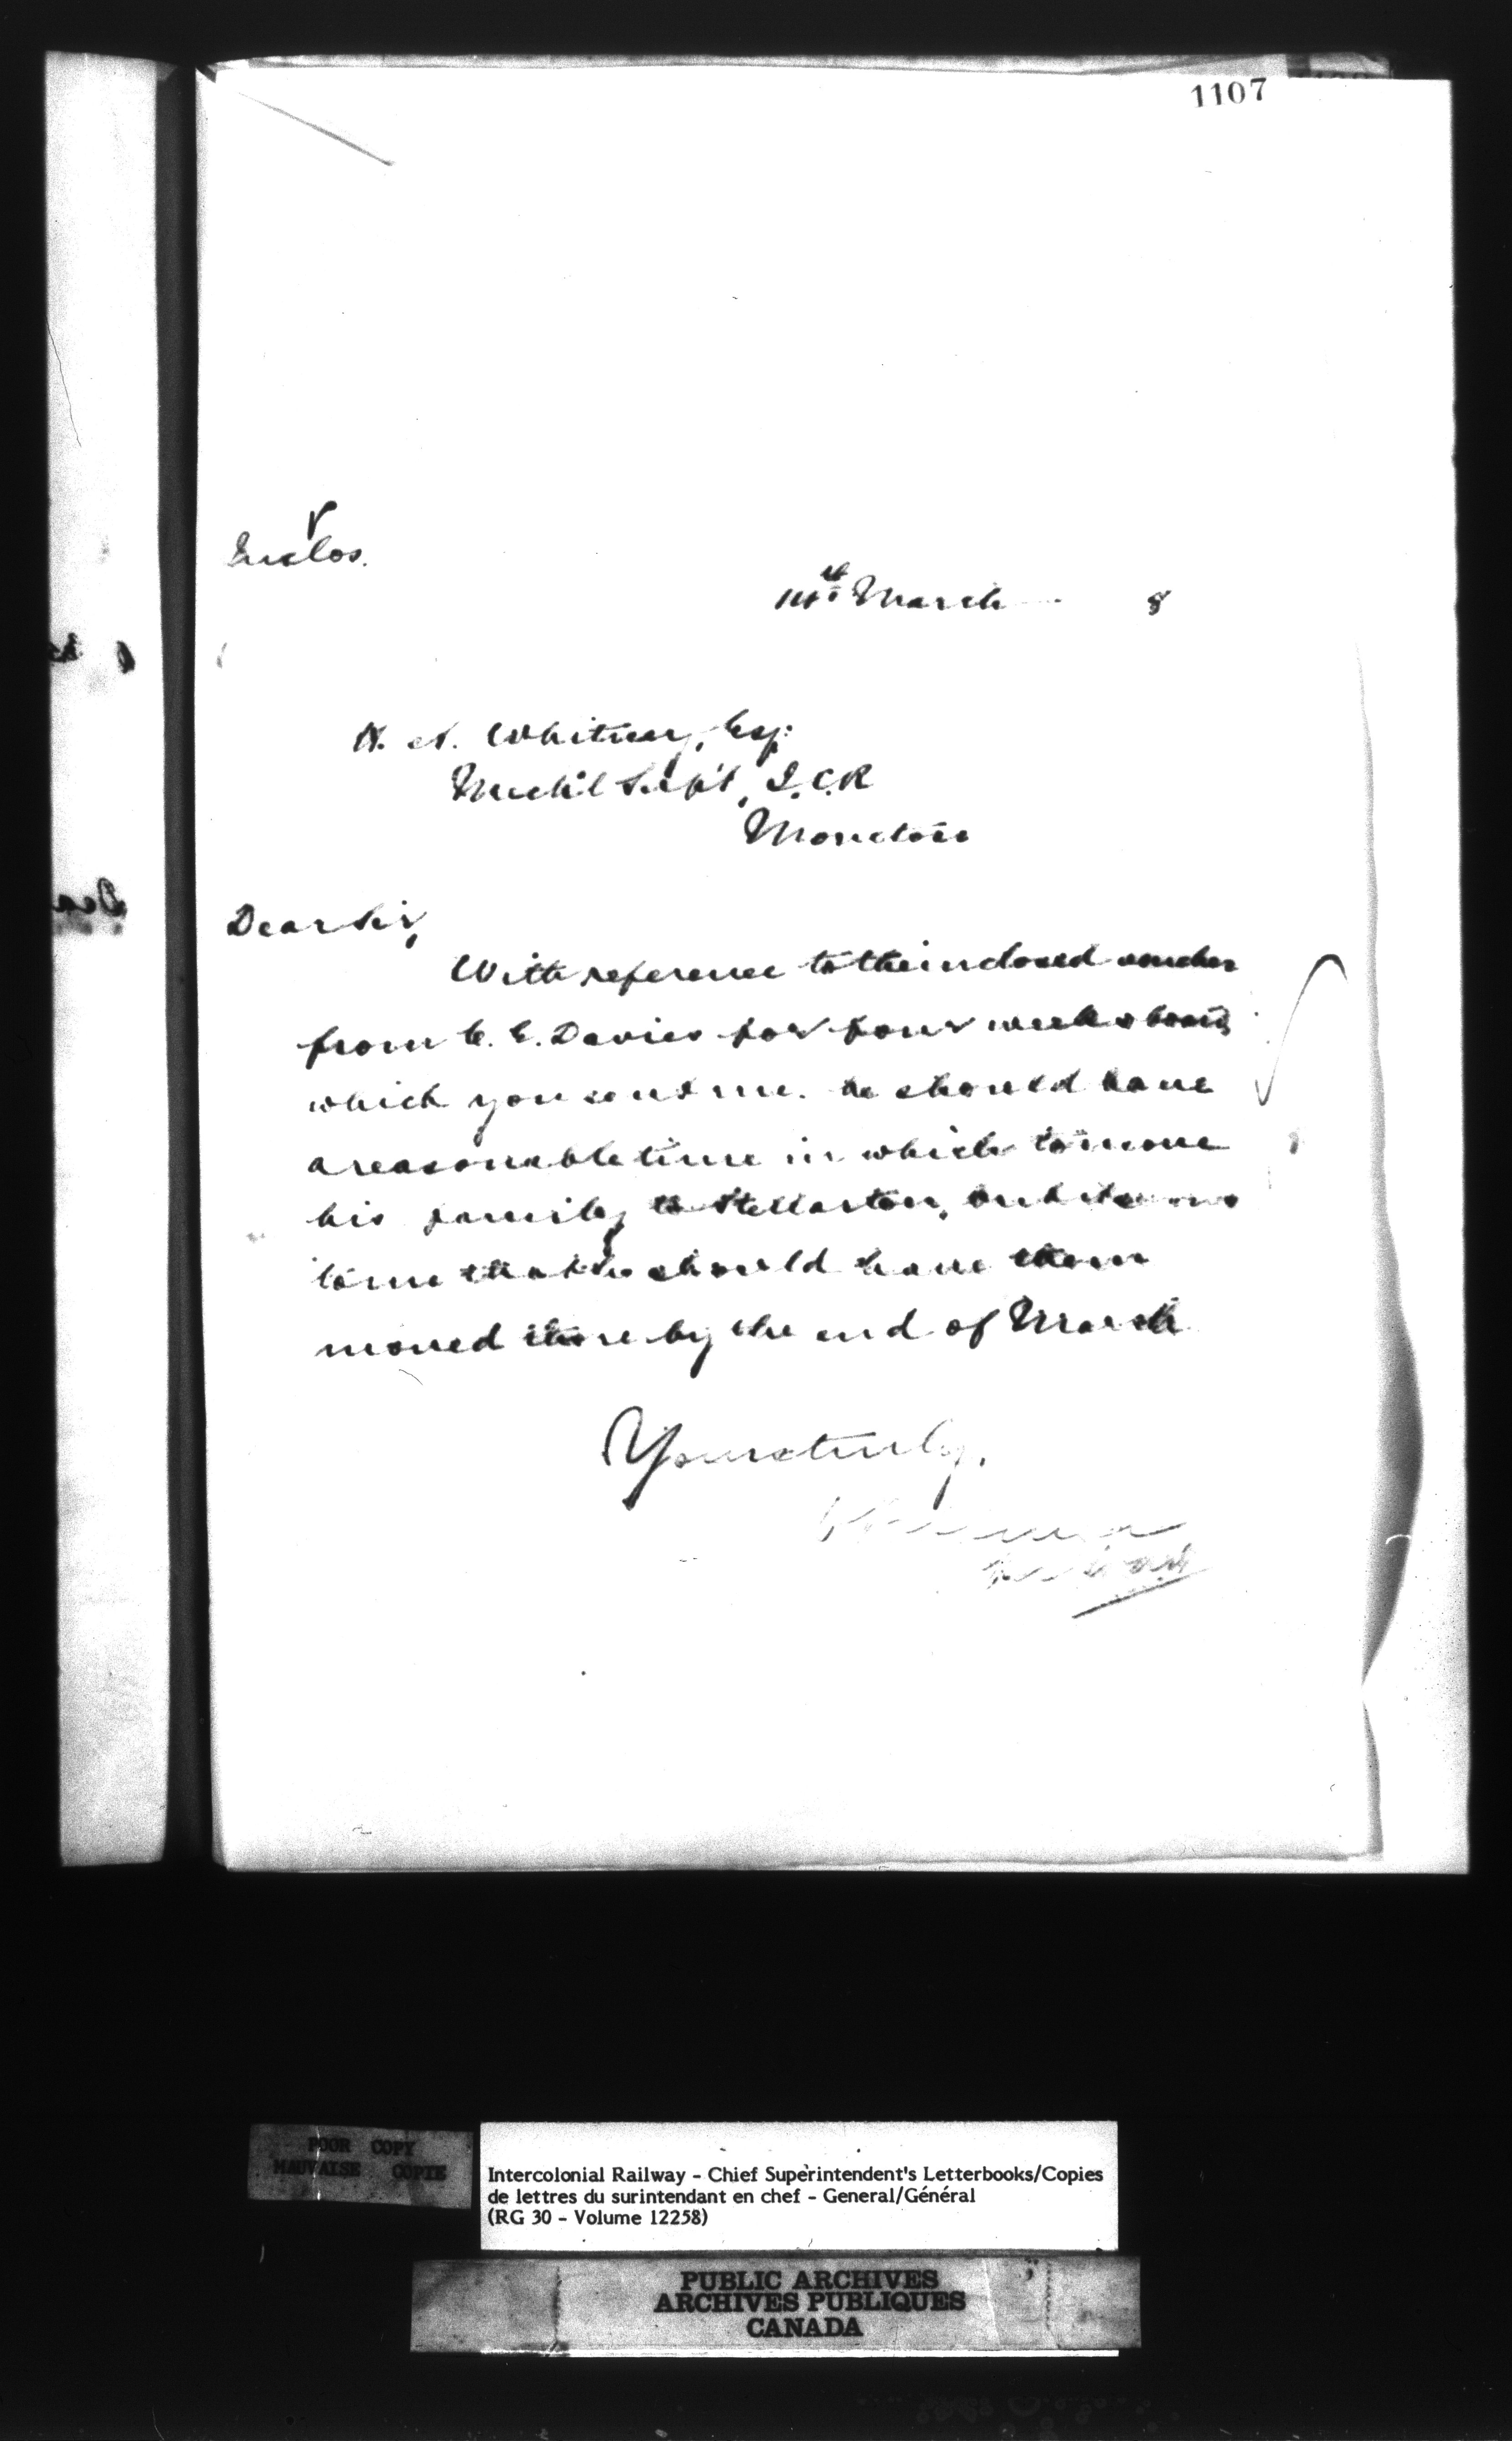 1107
Enclos.
14th March 8
Whitney, Esq:
Mech'l Supt, I.C.R
Moncton
Dear Sir,
With reference to the inclosed voucher
from C. E. Davies for four weeks board,
which you send me. he should have
a reasonable time in which to move
his family to Stellarton, but it seems
to me that he should have them
moved there by the end of March
Yours truly,
POOR COPY
MAUVAISE COPIE
Intercolonial Railway - Chief Superintendent's Letterbooks/Copies
de lettres du surintendant en chef - General/Général
(RG 30 - Volume 12258)
PUBLIC ARCHIVES
ARCHIVES PUBLIQUES
CANADA